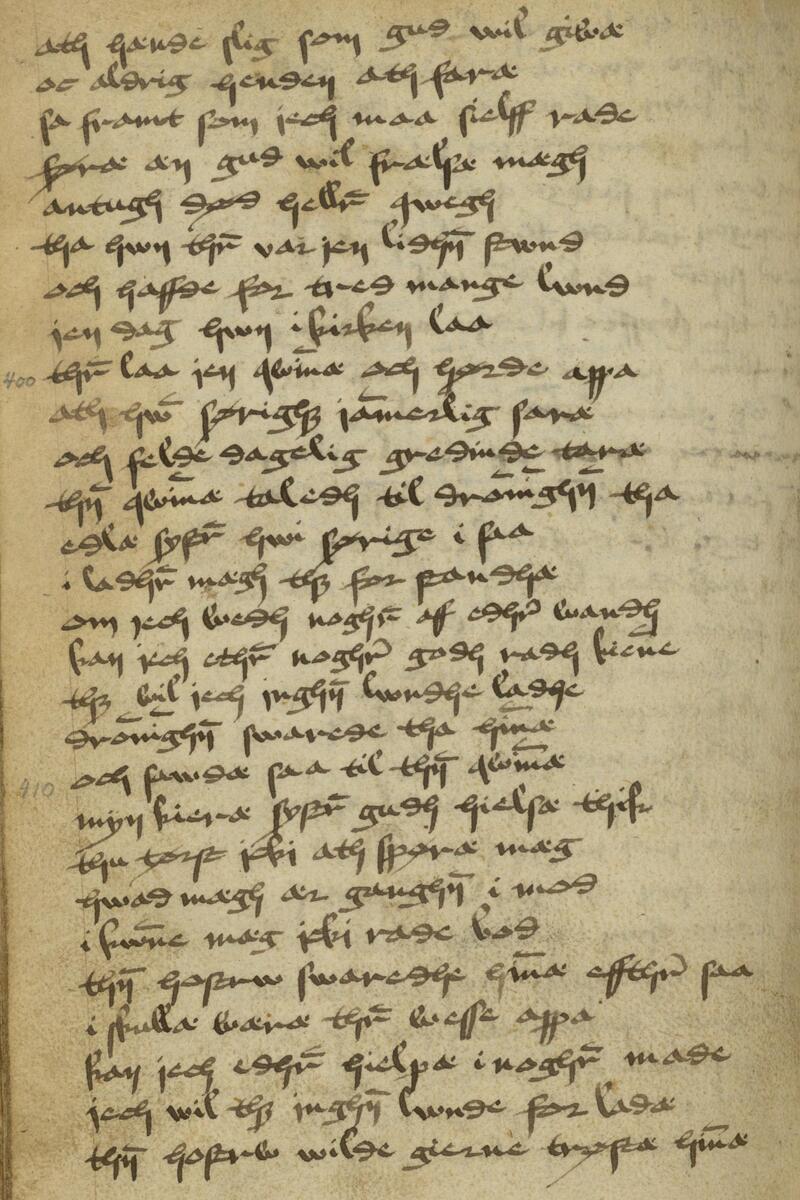 ath hænde slig som gud wil giwæ
oc aldrig henden ath faræ
sa framt som jech maa sielff rade
føræ æn gud wil frælsæ mægh
antugh død hellr̄ qwegh
tha hwn thr̄ var jen lidhn̄ stwnd
och haffde for tred mange lwnd
jen dag hwn i kirken laa
400 thr̄ laa jen qwin̄æ och hørde appa
ath hw̄ sørighꝫ jam̄erlig saræ
och felde dagelig gredinde taræ
thn̄ qwin̄æ taledh til dron̄ighn̄ tha
edlæ systr̄ hwi sørige i saa
i ladhr̄ mægh thꝫ for standhæ
om jech wedh noghr̄ aff edhr̄ wandh
kan jech ethr̄ noghr̄ godh radh kien̄e
thꝫ wil jech inghn̄ lwndhe ladhe
dron̄ighn̄ swarede tha hin̄æ
410 och sawdæ saa til thn̄ qwin̄æ
myn kieræ systr̄ gudh hielsæ thik
thu tørst icki ath spøræ mæg
hwad mægh ær ganghn̄ i mod
i kwn̄e mæg icki rade bod
thn̄ hostrw swaredhe hin̄æ effthr̄ saa
i skullæ wæræ thr̄ wesse appa
kan jech edhr̄ hielpæ i noghr̄ made
jech wil thꝫ inghn̄ lwnde for ladæ
thn̄ hostrw wilde gierne trøstæ hin̄æ